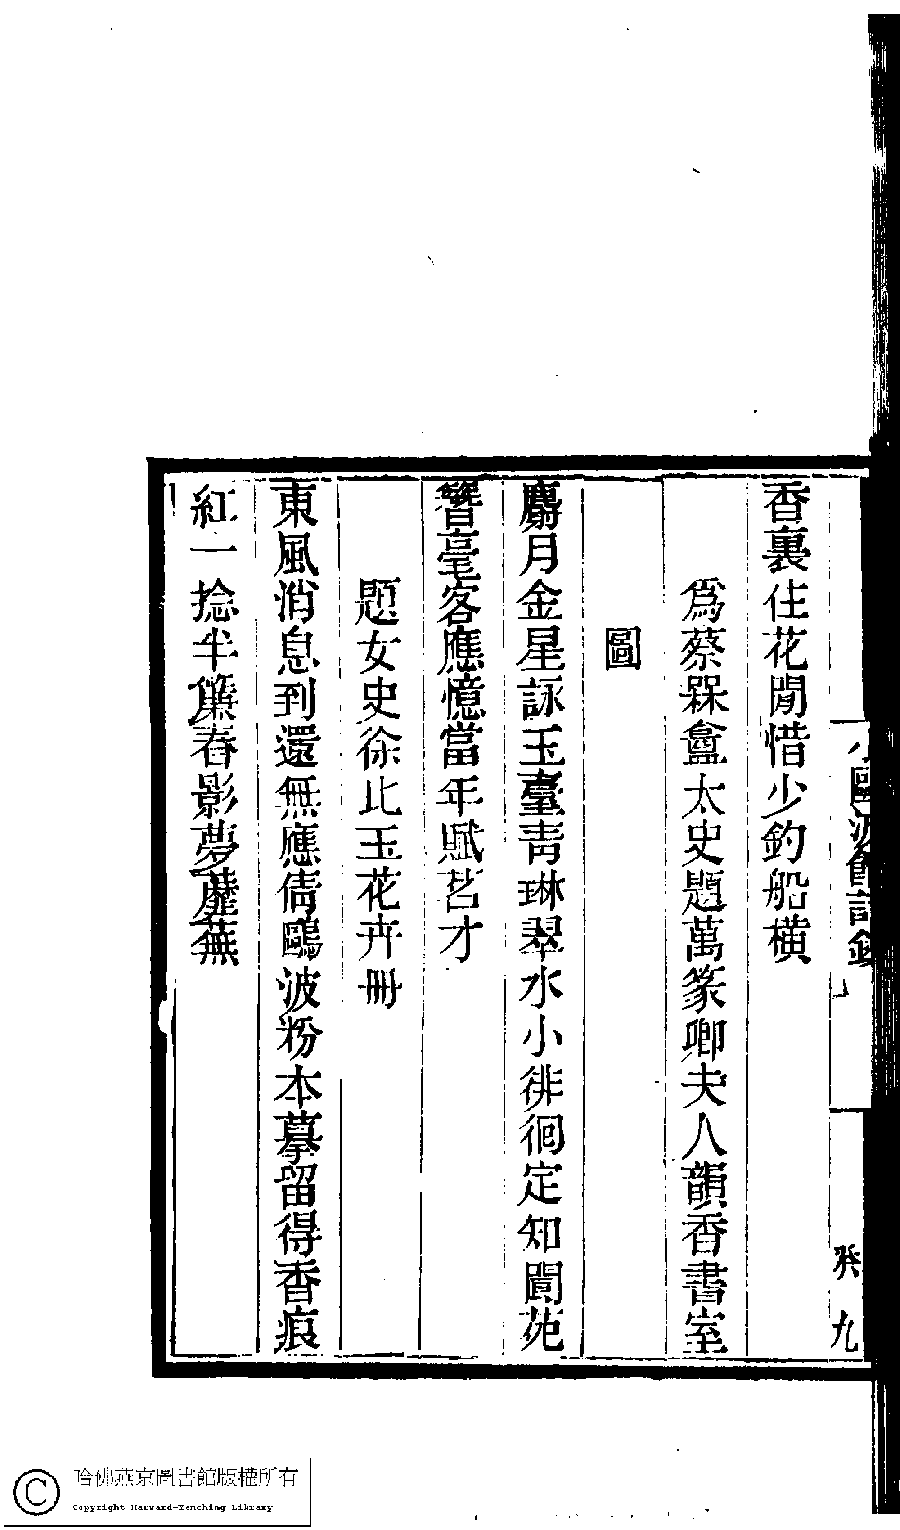 香裏住花閒惜少釣船橫
爲蔡槑盦太史題萬篆卿夫人韻香書室
圖
麝月金星詠玉臺青琳翠水小徘徊定知閬苑
簪毫客應憶當年賦茗才
題女史徐比玉花卉冊
東風消息到還無應倩鷗波粉本摹留得香痕
紅一捻半簾春影夢蘼蕪
小鷗波館詩鈔
癸 九
哈佛燕京圖書館版權所有
Copyright Harvard-Yenching Library